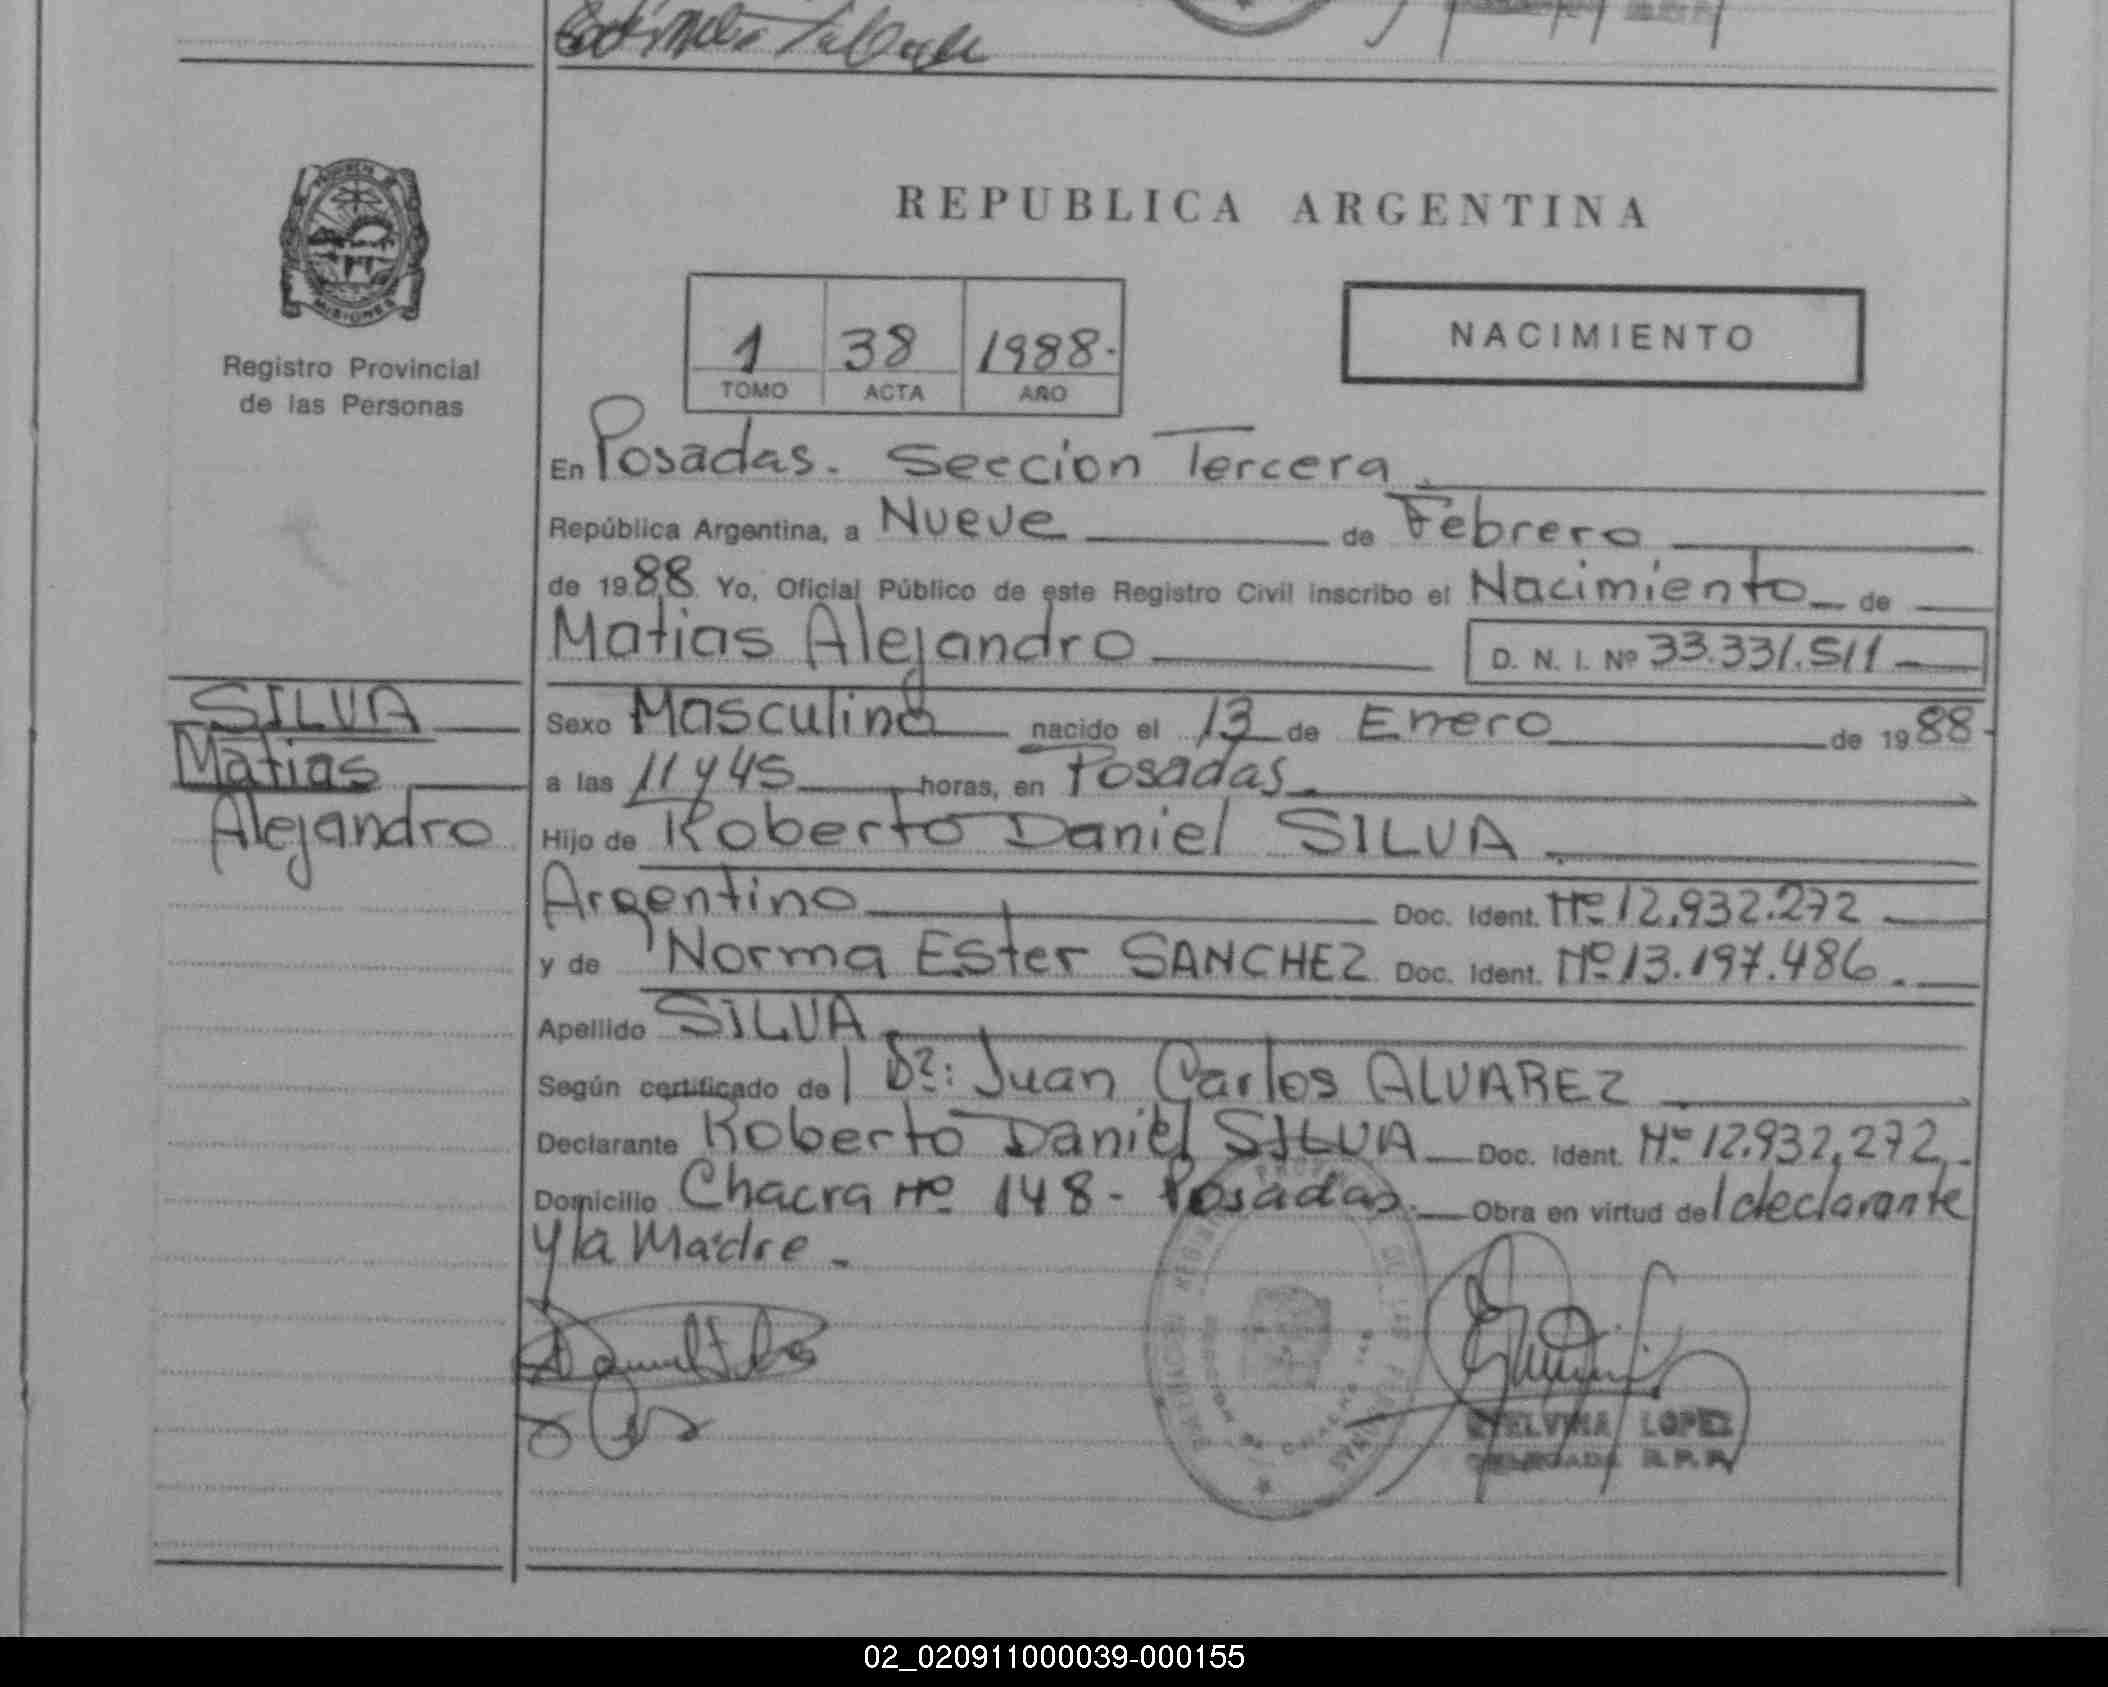 PROVINCIA DE
MISIONES
Registro Provincial
de las Personas
SILVA
Matias
Alejandro
REPUBLICA ARGENTINA
1 38 1988.
TOMO ACTA AÑO
NACIMIENTO
En Posadas. Seccion Tercera
República Argentina, a Nueve de Febrero
de 1988 Yo, Oficial Público de este Registro Civil inscribo el Nacimiento de
Matias Alejandro D. N. I. Nº 33.331.511
Sexo Masculino nacido el 13 de Enero de 1988
a las 11 y 45 horas, en Posadas
Hijo de Roberto Daniel SILVA
Argentino Doc. Ident. Nº 12.932.272
y de Norma Ester SANCHEZ Doc. Ident. Nº 13.197.486
Apellido SILVA
Según certificado del Dr: Juan Carlos ALVAREZ
Declarante Roberto Daniel SILVA Doc. Ident. Nº 12.932.272
Domicilio Chacra Nº 148 - Posadas. Obra en virtud del declarante
y la Madre.
LOPEZ
DELEGADA R.P.P.
02_020911000039-000155